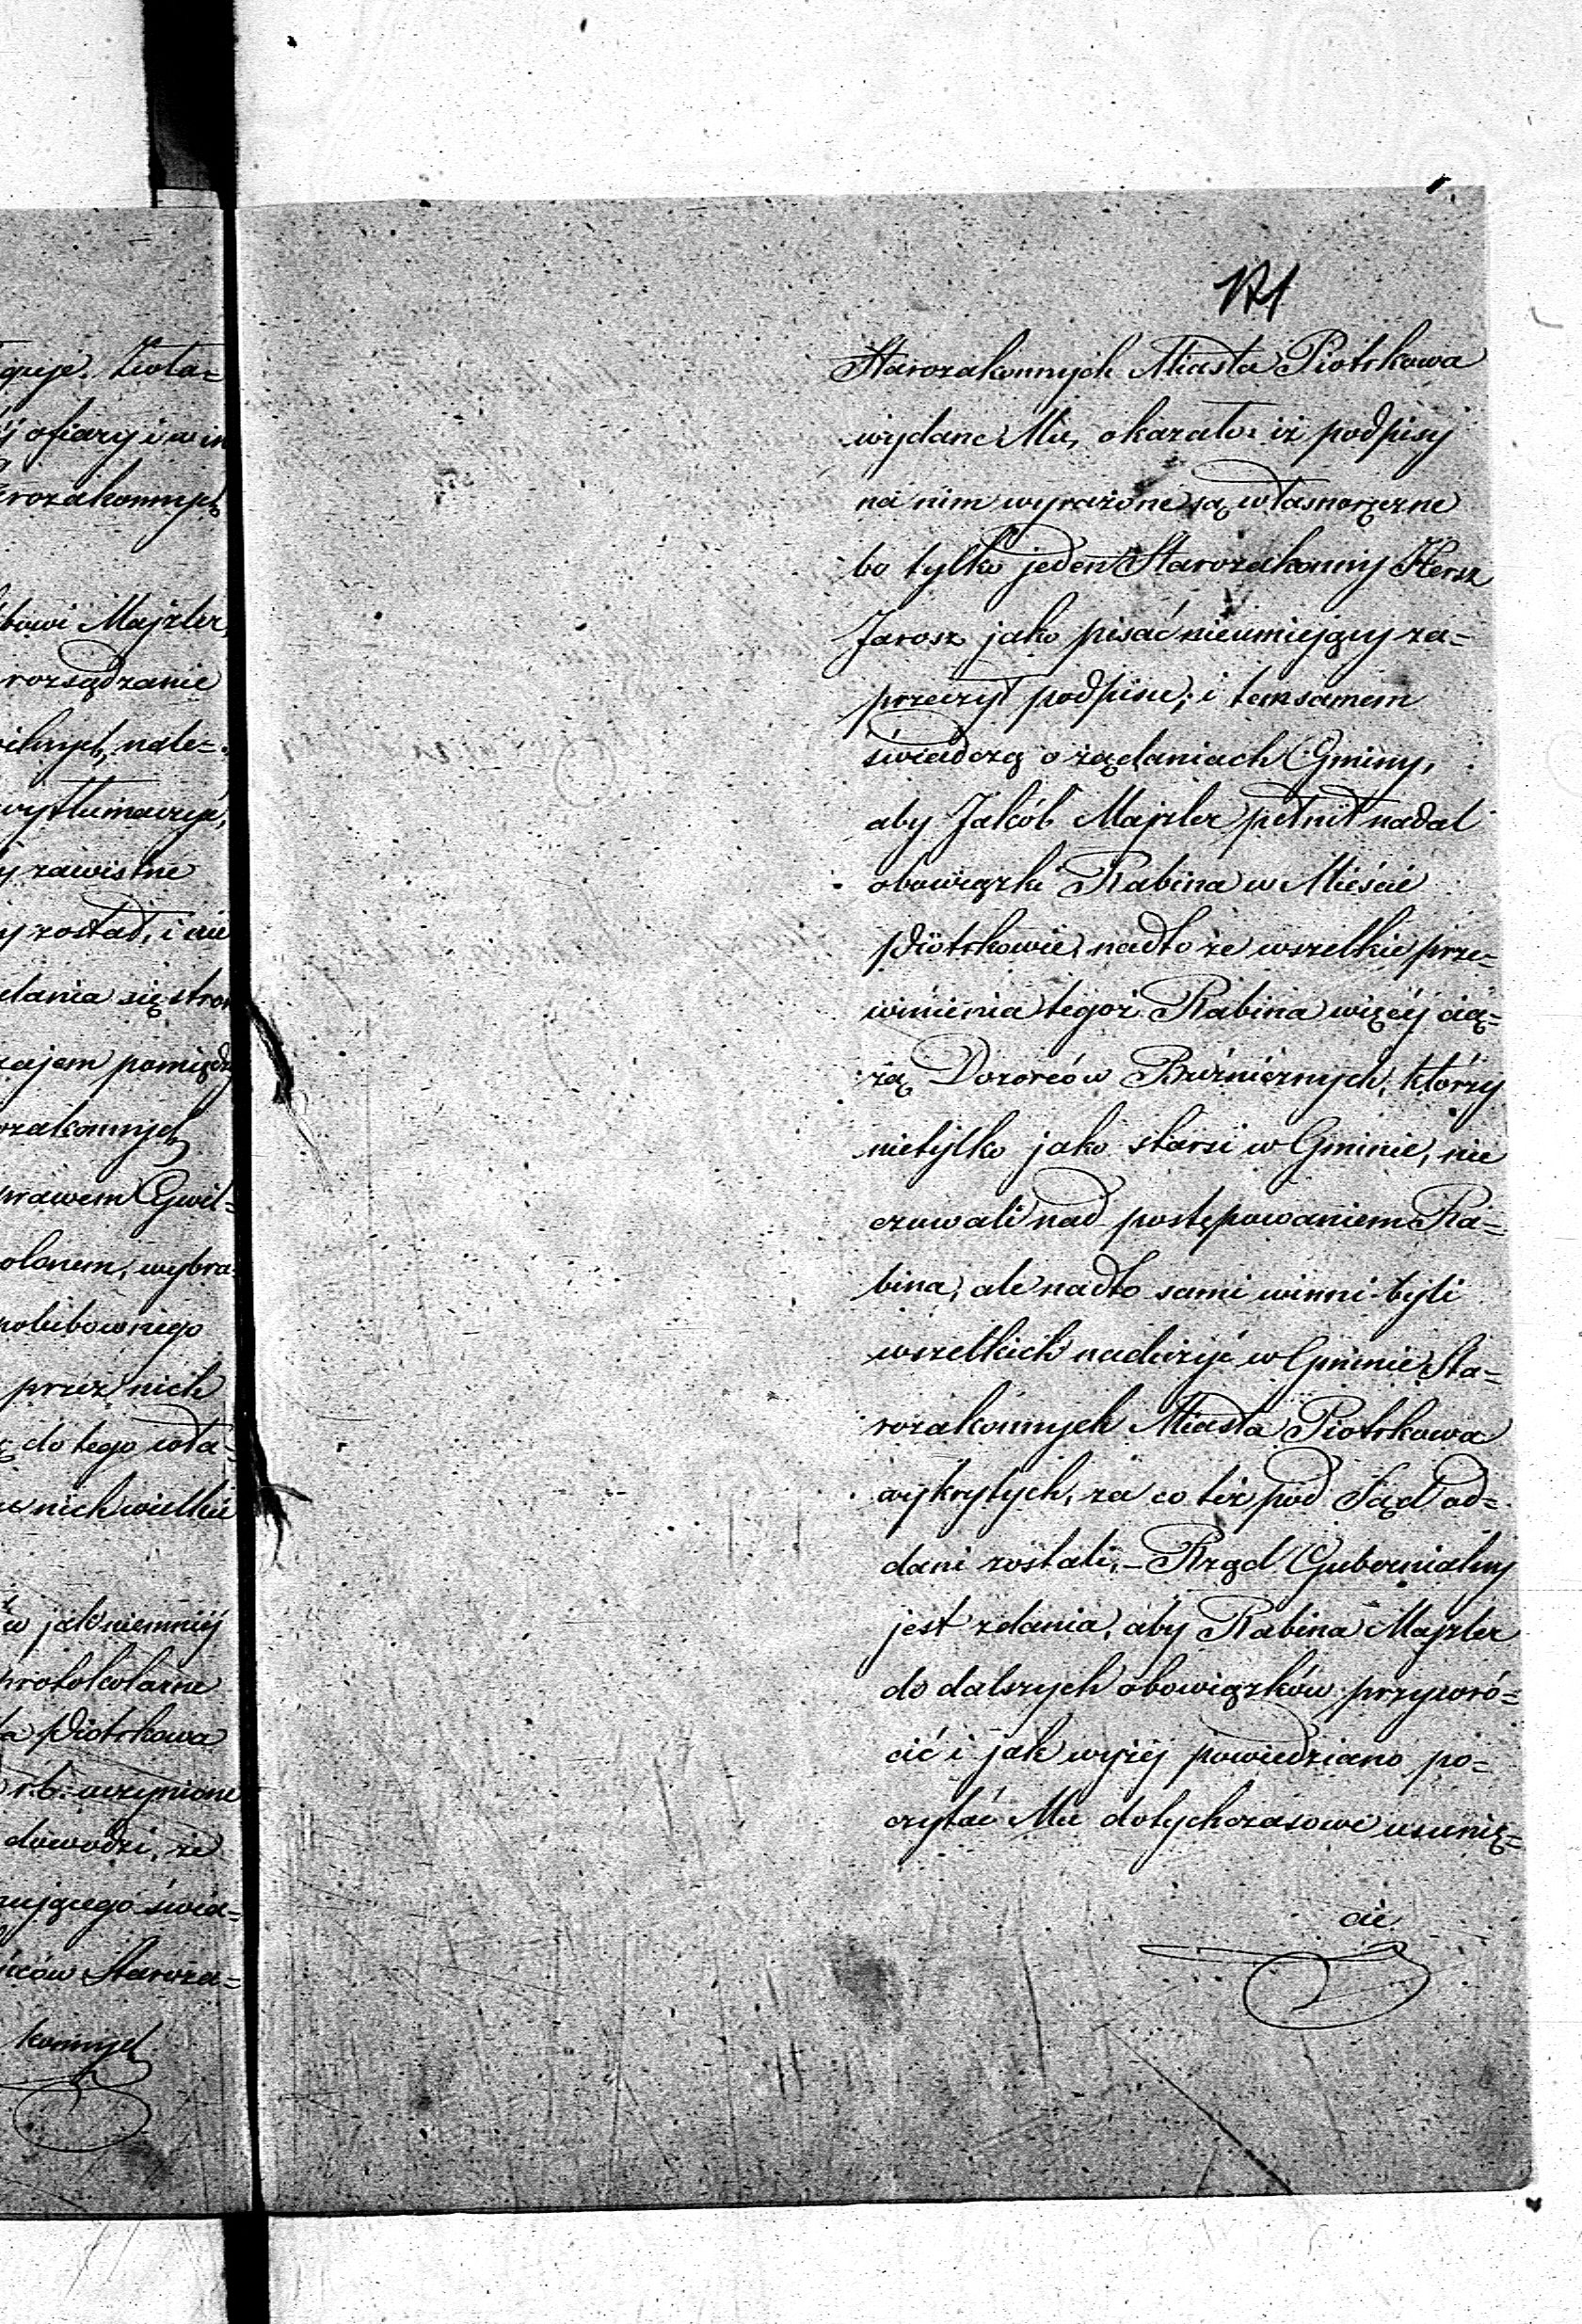 guje. Zwła=
j ofiary i win
rozakonnych
bowi Majzler,
rozsądzanie
ilnych, nale=
wytłumaczyć,
j zawistne
y został, i nie
dania się stron
zajem pomiędzy
ozakonnych
prawem Cywil=
olonem, wybra
polubownego
przez nich
do tego wła=
nich wielkie
w jak niemniej
protokolarne
ta Piotrkowa
r.b. uczynione
dowodzi, że
ującego świa=
ńców Staroza=
konnych
171
Starozakonnych Miasta Piotrkowa
wydane Mu, okazało: iż podpisy
na nim wyrażone są własnoręczne
bo tylko jeden Starozakonny Hersz
Jarosz jako pisać nieumiejący za=
przeczył podpisu; i temsamem
świadczą o żądaniach Gminy,
aby Jakób Majzler pełnił nadal
obowiązki Rabina w Mieście
Piotrkowie, nadto że wszelkie prze=
winienia tegoż Rabina więcéj cią=
żą Dozorców Bóżnicznych, którzy
nietylko jako starsi w Gminie, nie
czuwali nad postępowaniem Ra=
bina, ale nadto sami winni byli
wszelkich nadużyć w Gminie Sta=
rozakonnych Miasta Piotrkowa
wykrytych, za co też pod Sąd od=
dani zostali, – Rząd Gubernialny
jest zdania, aby Rabina Majzler
do dalszych obowiązków przywró=
cić i jak wyżéj powiedziano po=
czytać Mu dotychczasowe usunię=
cie